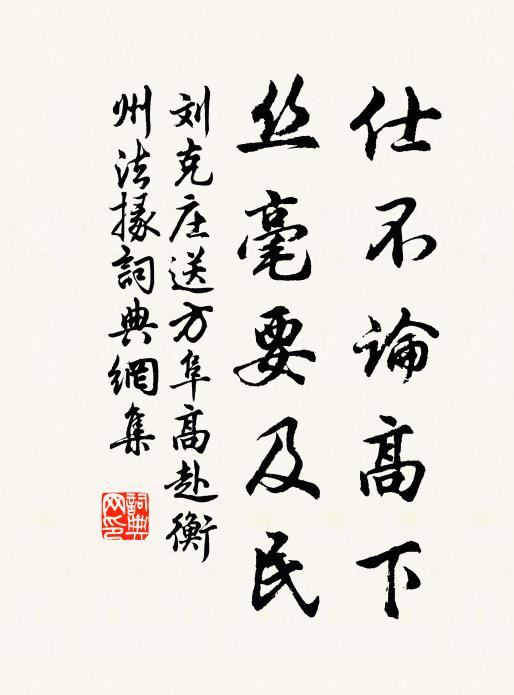 仕不論高下
丝毫要及民
刘克庄送方阜高赴衡
州法掾詞典網集
詞典网印